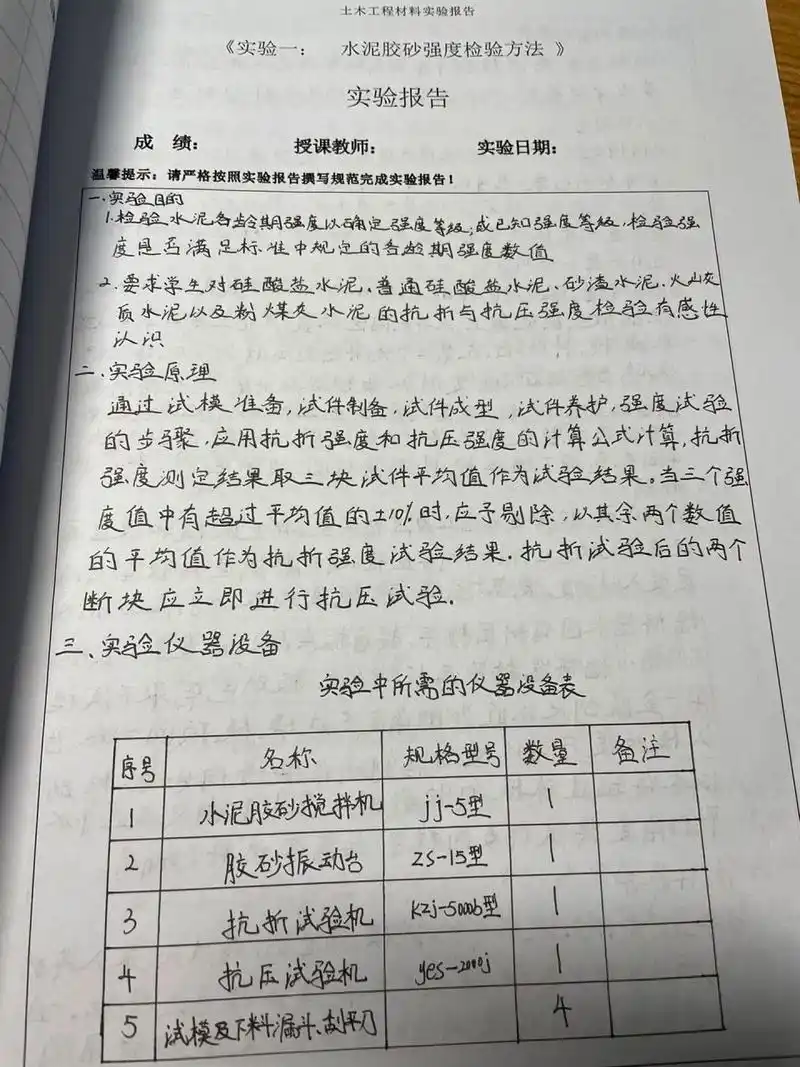 土木工程材料实验报告
《实验一： 水泥胶砂强度检验方法 》
实验报告
成 绩： 授课教师： 实验日期：
温馨提示：请严格按照实验报告撰写规范完成实验报告！
一.实验目的
1.检验水泥各龄期强度以确定强度等级;或已知强度等级,检验强
度是否满足标准中规定的各龄期强度数值
2.要求学生对硅酸盐水泥、普通硅酸盐水泥、矿渣水泥、火山灰
质水泥以及粉煤灰水泥的抗折与抗压强度检验有感性
认识
二.实验原理
通过试模准备,试件制备,试件成型,试件养护,强度试验
的步骤,应用抗折强度和抗压强度的计算公式计算,抗折
强度测定结果取三块试件平均值作为试验结果。当三个强
度值中有超过平均值的±10%时,应予剔除,以其余两个数值
的平均值作为抗折强度试验结果.抗折试验后的两个
断块应立即进行抗压试验.
三、实验仪器设备
实验中所需的仪器设备表
序号 名称 规格型号 数量 备注
1 水泥胶砂搅拌机 jj-5型 1
2 胶砂振动台 ZS-15型 1
3 抗折试验机 KZj-5000b型 1
4 抗压试验机 yes-2000j 1
5 试模及下料漏斗、刮平刀 4